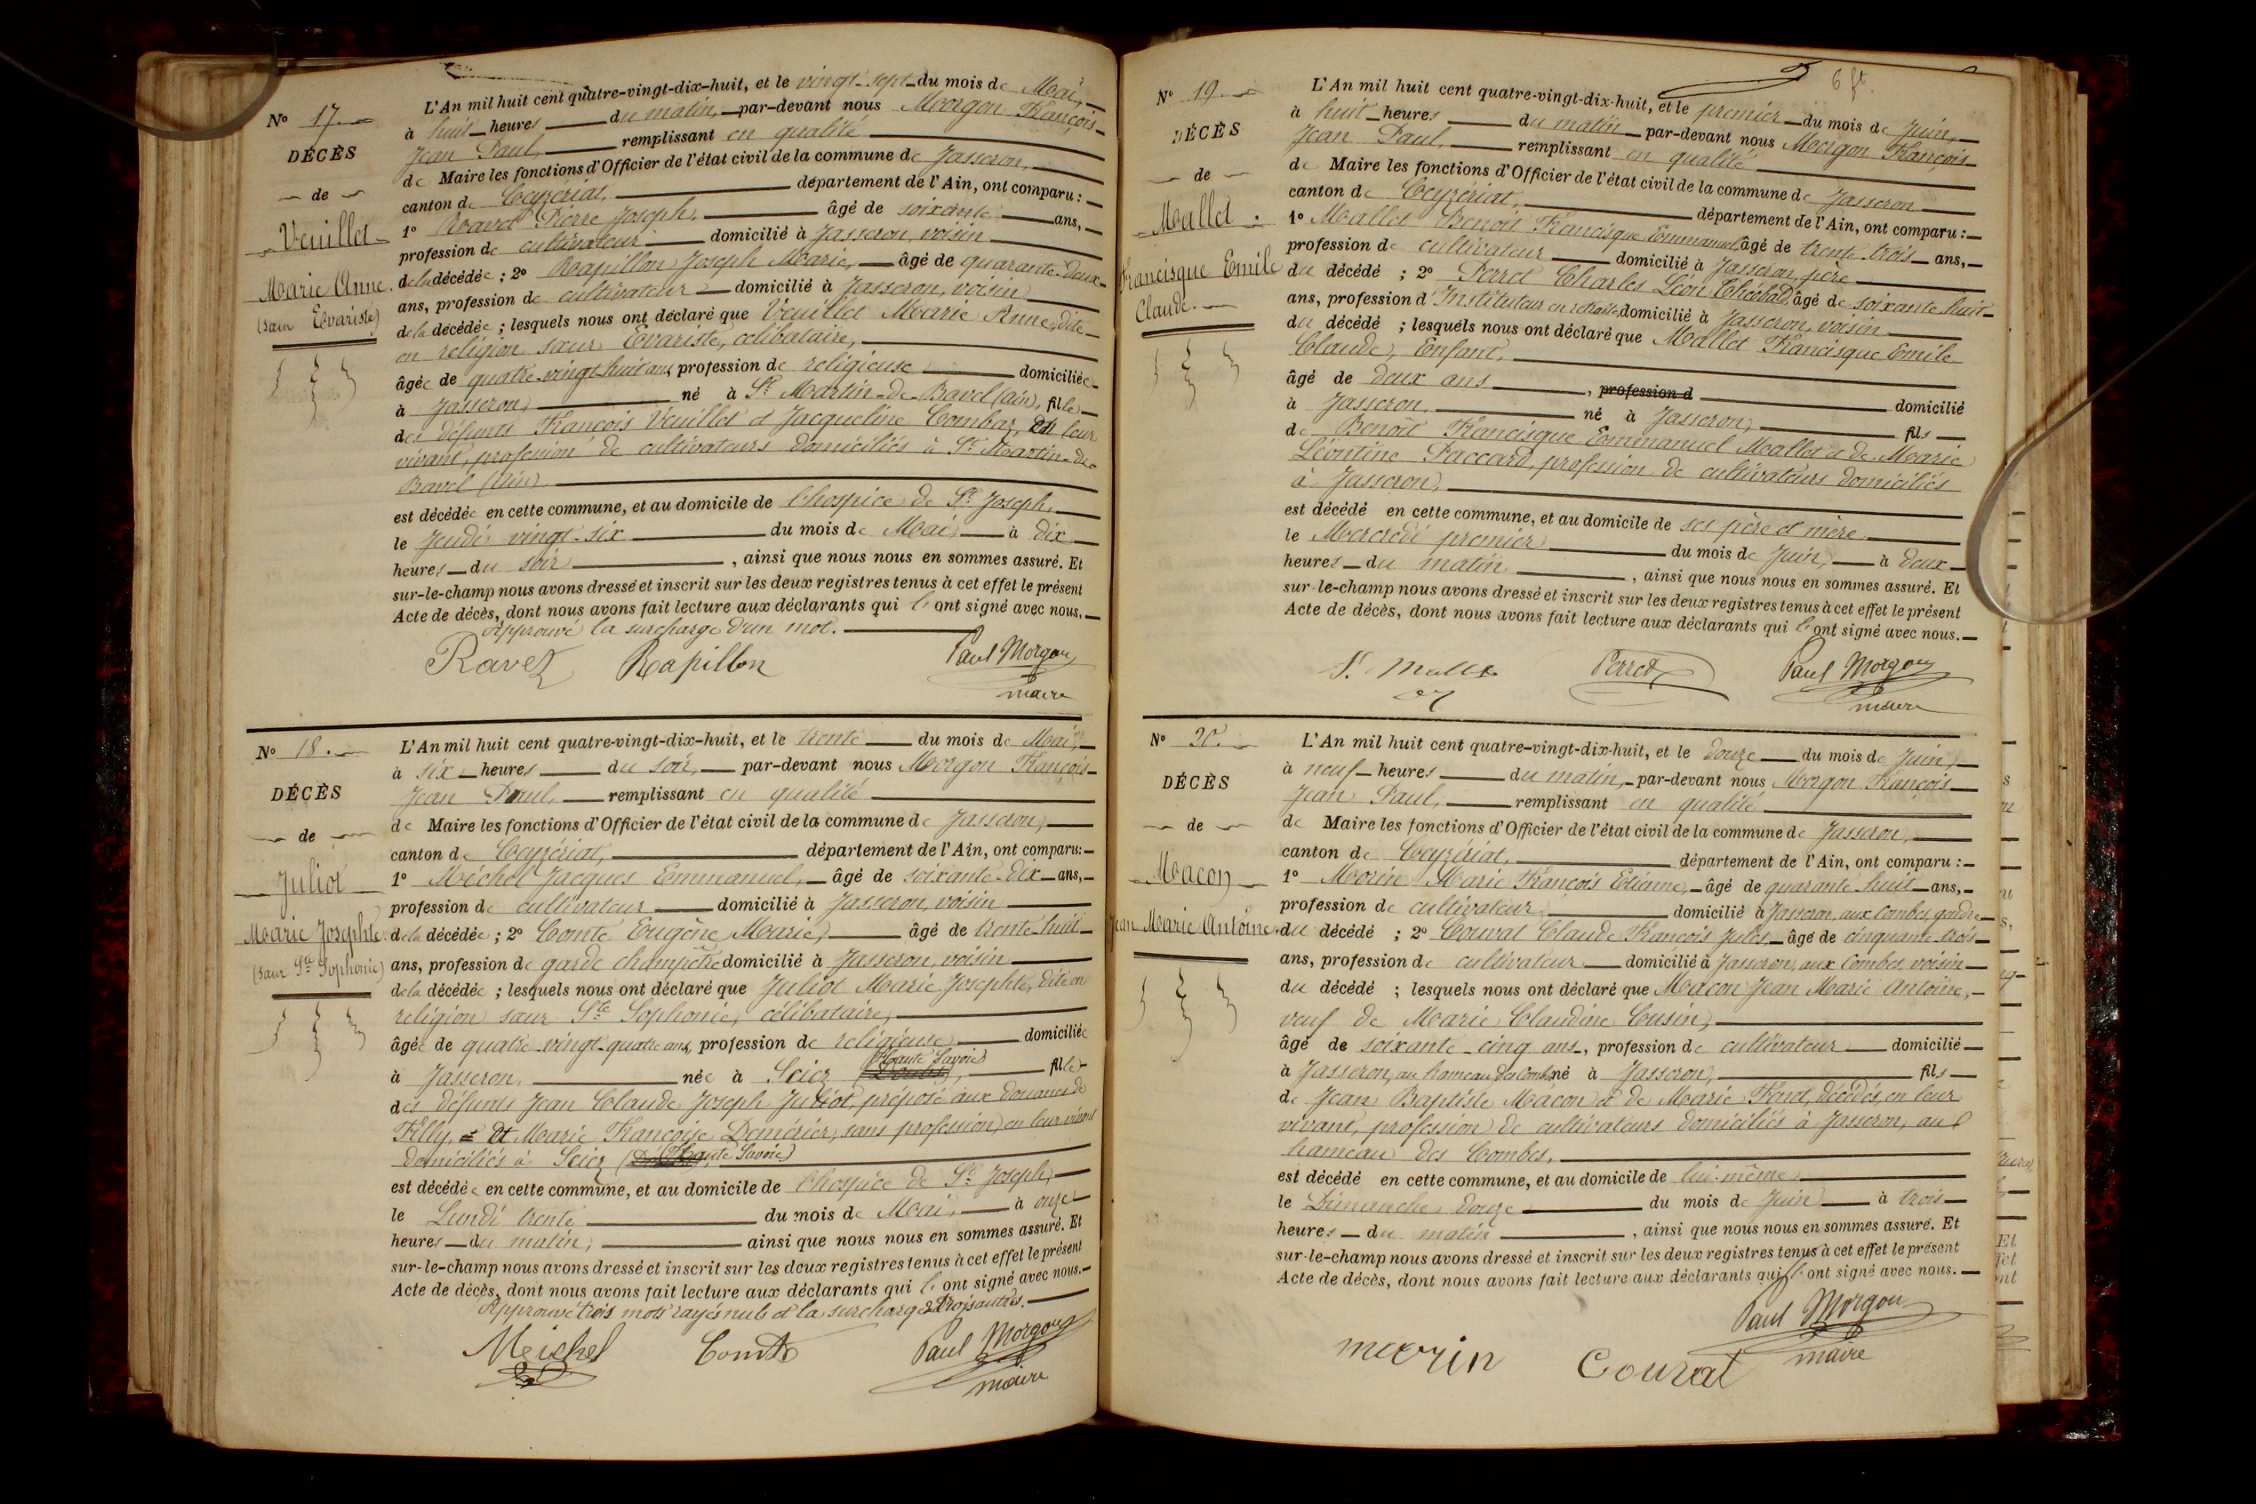 N° 17.
DÉCÈS
de
Veuillet
Marie Anne.
(Sœur Evariste)
L'An mil huit cent quatre-vingt-dix-huit, et le vingt-sept du mois de Mai,
à huit heures du matin, par-devant nous Morgon François
Jean Paul, remplissant en qualité
de Maire les fonctions d'Officier de l'état civil de la commune de Jasseron,
canton de Ceyzériat, département de l'Ain, ont comparu :
1° Ravet Pierre Joseph, âgé de soixante ans,
profession de cultivateur domicilié à Jasseron, voisin
de la décédée ; 2° Rapillon Joseph Marie, âgé de quarante-deux
ans, profession de cultivateur domicilié à Jasseron, voisin
de la décédée ; lesquels nous ont déclaré que Veuillet Marie Anne, dite
en religion sœur Evariste, célibataire,
âgée de quatre-vingt-huit ans, profession de religieuse domiciliée
à Jasseron, né à St Martin-de-Bavel (Ain), fille
des défunts François Veuillet et Jacqueline Combaz, en leur
vivant, profession de cultivateurs domiciliés à St Martin-de-
Bavel (Ain)
est décédée en cette commune, et au domicile de l'hospice de St Joseph,
le Jeudi vingt-six du mois de Mai à dix
heures du soir, ainsi que nous nous en sommes assuré. Et
sur-le-champ nous avons dressé et inscrit sur les deux registres tenus à cet effet le présent
Acte de décès, dont nous avons fait lecture aux déclarants qui l'ont signé avec nous.
Approuvé la surcharge d'un mot.
Ravet Rapillon Paul Morgon
maire
N° 18.
DÉCÈS
de
Juliot
Marie Josephte.
(Sœur Ste Sophonie)
L'An mil huit cent quatre-vingt-dix-huit, et le trente du mois de Mai,
à six heures du soir, par-devant nous Morgon François
Jean Paul, remplissant en qualité
de Maire les fonctions d'Officier de l'état civil de la commune de Jasseron,
canton de Ceyzériat, département de l'Ain, ont comparu :
1° Michel Jacques Emmanuel, âgé de soixante-dix ans,
profession de cultivateur domicilié à Jasseron, voisin
de la décédée ; 2° Comte Eugène Marie, âgé de trente-huit
ans, profession de garde champêtre domicilié à Jasseron, voisin
de la décédée ; lesquels nous ont déclaré que Juliot Marie Josephte, dite en
religion sœur Ste Sophonie, célibataire,
âgée de quatre-vingt-quatre ans, profession de religieuse domiciliée
à Jasseron, née à Sciez (Doubs) (Haute Savoie), fille
des défunts Jean Claude Joseph Juliot, préposé aux douanes de
Filly, et Marie Françoise Deménier, sans profession, en leur vivant
domiciliés à Sciez (Haute Savoie)
est décédée en cette commune, et au domicile de l'hospice de St Joseph,
le Lundi trente du mois de Mai, à onze
heures du matin, ainsi que nous nous en sommes assuré. Et
sur-le-champ nous avons dressé et inscrit sur les deux registres tenus à cet effet le présent
Acte de décès, dont nous avons fait lecture aux déclarants qui l'ont signé avec nous.
Approuvé trois mots rayés nuls et la surcharge de trois autres.
Michel Comte Paul Morgon
maire
6 ft.
N° 19.
DÉCÈS
de
Mallet.
Francisque Emile
Claude.
L'An mil huit cent quatre-vingt-dix-huit, et le premier du mois de Juin,
à huit heures du matin par-devant nous Morgon François
Jean Paul, remplissant en qualité
de Maire les fonctions d'Officier de l'état civil de la commune de Jasseron
canton de Ceyzériat, département de l'Ain, ont comparu :
1° Mallet Benoit Francisque Emmanuel âgé de trente-trois ans,
profession de cultivateur domicilié à Jasseron, père
du décédé ; 2° Perret Charles Léon Théobald, âgé de soixante-huit
ans, profession d'Instituteur en retraite, domicilié à Jasseron, voisin
du décédé ; lesquels nous ont déclaré que Mallet Francisque Emile
Claude, Enfant,
âgé de deux ans, profession d domicilié
à Jasseron, né à Jasseron, fils
de Benoit Francisque Emmanuel Mallet et de Marie
Léontine Paccard, profession de cultivateurs domiciliés
à Jasseron,
est décédé en cette commune, et au domicile de ses père et mère
le Mercredi premier du mois de Juin, à deux
heures du matin, ainsi que nous nous en sommes assuré. Et
sur-le-champ nous avons dressé et inscrit sur les deux registres tenus à cet effet le présent
Acte de décès, dont nous avons fait lecture aux déclarants qui l'ont signé avec nous.
Perret Paul Morgon
maire
N° 20.
DÉCÈS
de
Macon
Jean Marie Antoine.
L'An mil huit cent quatre-vingt-dix-huit, et le douze du mois de Juin,
à neuf heures du matin, par-devant nous Morgon François
Jean Paul, remplissant en qualité
de Maire les fonctions d'Officier de l'état civil de la commune de Jasseron,
canton de Ceyzériat, département de l'Ain, ont comparu :
1° Morin Marie François Etienne, âgé de quarante-huit ans,
profession de cultivateur domicilié à Jasseron, aux Combes, gendre
du décédé ; 2° Couvat Claude François Jules âgé de cinquante-trois
ans, profession de cultivateur domicilié à Jasseron, aux Combes, voisin
du décédé ; lesquels nous ont déclaré que Macon Jean Marie Antoine,
veuf de Marie Claudine Cusin,
âgé de soixante-cinq ans, profession de cultivateur domicilié
à Jasseron, au hameau des Combes né à Jasseron, fils
de Jean Baptiste Macon et de Marie décédés, en leur
vivant, profession de cultivateurs domiciliés à Jasseron, au
hameau des Combes,
est décédé en cette commune, et au domicile de lui-même
le Dimanche douze du mois de Juin à trois
heures du matin, ainsi que nous nous en sommes assuré. Et
sur-le-champ nous avons dressé et inscrit sur les deux registres tenus à cet effet le présent
Acte de décès, dont nous avons fait lecture aux déclarants qui l'ont signé avec nous.
Paul Morgon
morin Couvat maire